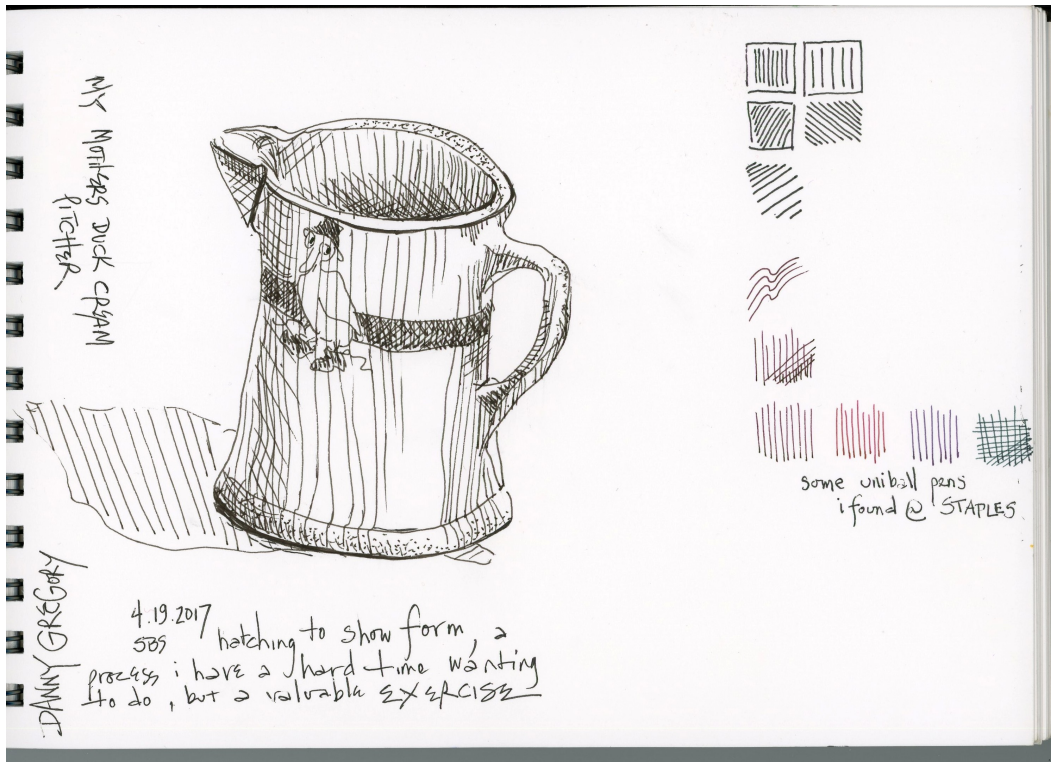 MY MOTHERS DUCK CREAM
PITCHER
DANNY GREGORY
4.19.2017
SBS
hatching to show form, a
process i have a hard time wanting
to do, but a valuable EXERCISE
some uniball pens
i found @ STAPLES